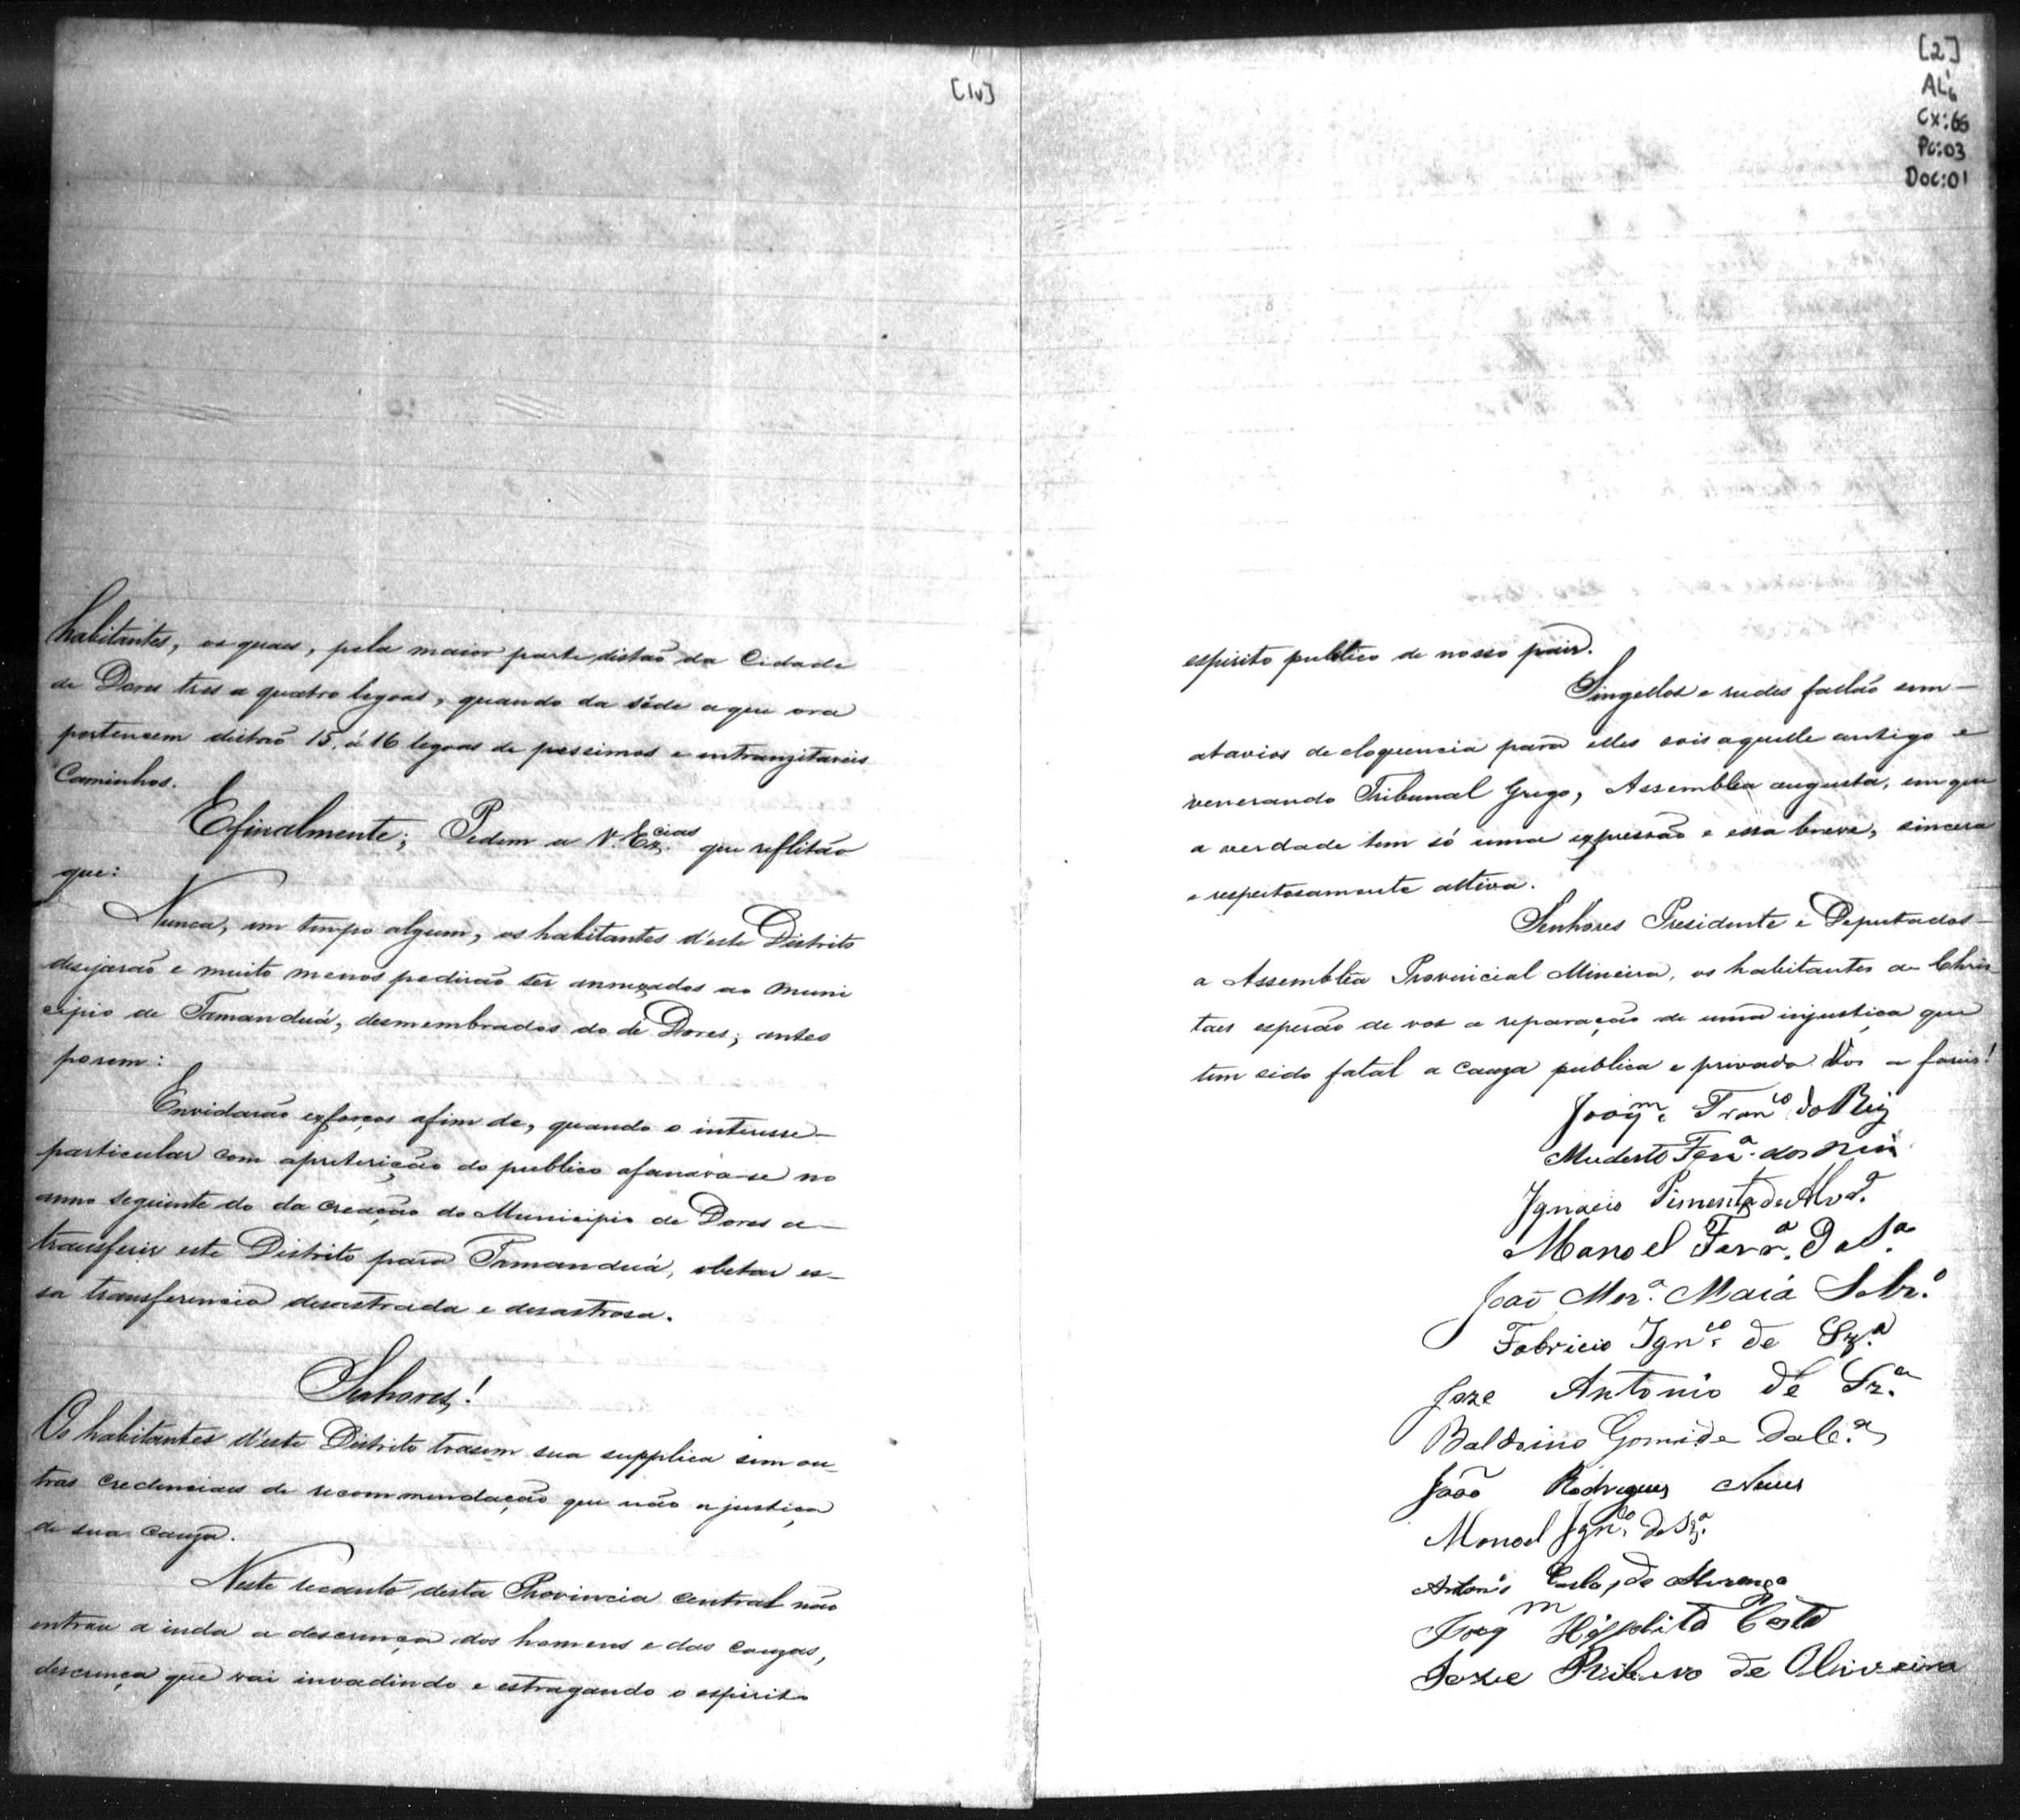 [1v]
habitantes, os quaes, pela maior parte distão da Cidade
de Dores tres a quatro legoas, quando da séde a que ora
pertencem distão 15, á 16 legoas de pessimos e intranzitaveis
Caminhos.
E finalmente; Pedem a V. Ex.cias que reflitão
que:
Nunca, em tempo algum, os habitantes d'este Distrito
desejarão e muito menos pedirão ser annexados ao Muni
cipio de Tamanduá, desmembrados do de Dores; antes
porem:
Envidarão exforços afim de, quando o interesse
particular com apreterição do publico afanava-se no
anno seguinte do da creação do Municipio de Dores a
transferir este Distrito para Tamanduá, obstar es-
sa transferencia desastrada e desastrosa.
Senhores!
Os habitantes d'este Distrito trasem sua supplica sem ou-
tras credenciaes de recommendação que não a justiça
de sua Cauza.
Neste recanto desta Provincia Central não
entrou a inda a descrença dos homens e das Couzas,
descrença que vai invadindo e estragando o espirito
[2]
AL
Cx:66
Pc:03
Doc:01
espirito publico de nosso paiz.
Singellos e rudes fallão sem
atavios de eloquencia para elles sois aquelle antigo e
venerando Tribunal Grego, Assemblea augusta, em que
a verdade tem só uma expressão e essa breve, sincera
e respeitosamente altiva.
Senhores Presidente e Deputados
a Assembléa Provincial Mineira, os habitantes de Chris
taes esperão de vos a reparação de uma injustiça que
tem sido fatal a Cauza publica e privada. Vos a fareis!
Joaq.m Fran.co do Reiz
Mudesto Ferr.a dos Reis
Ignacio Pimenta de
Manoel Ferr.a da S.a
João Mor.a Maia Sobr.o
Fabricio Ign.co de Sz.a
Joze Antonio de Sz.a
Baldoino Gomide
João Rodrigues Nunes
Manoel Ign.co de Sz.a
Antonio de
Joaq.m Hippolito Costa
Jose Ribeiro de Oliveira